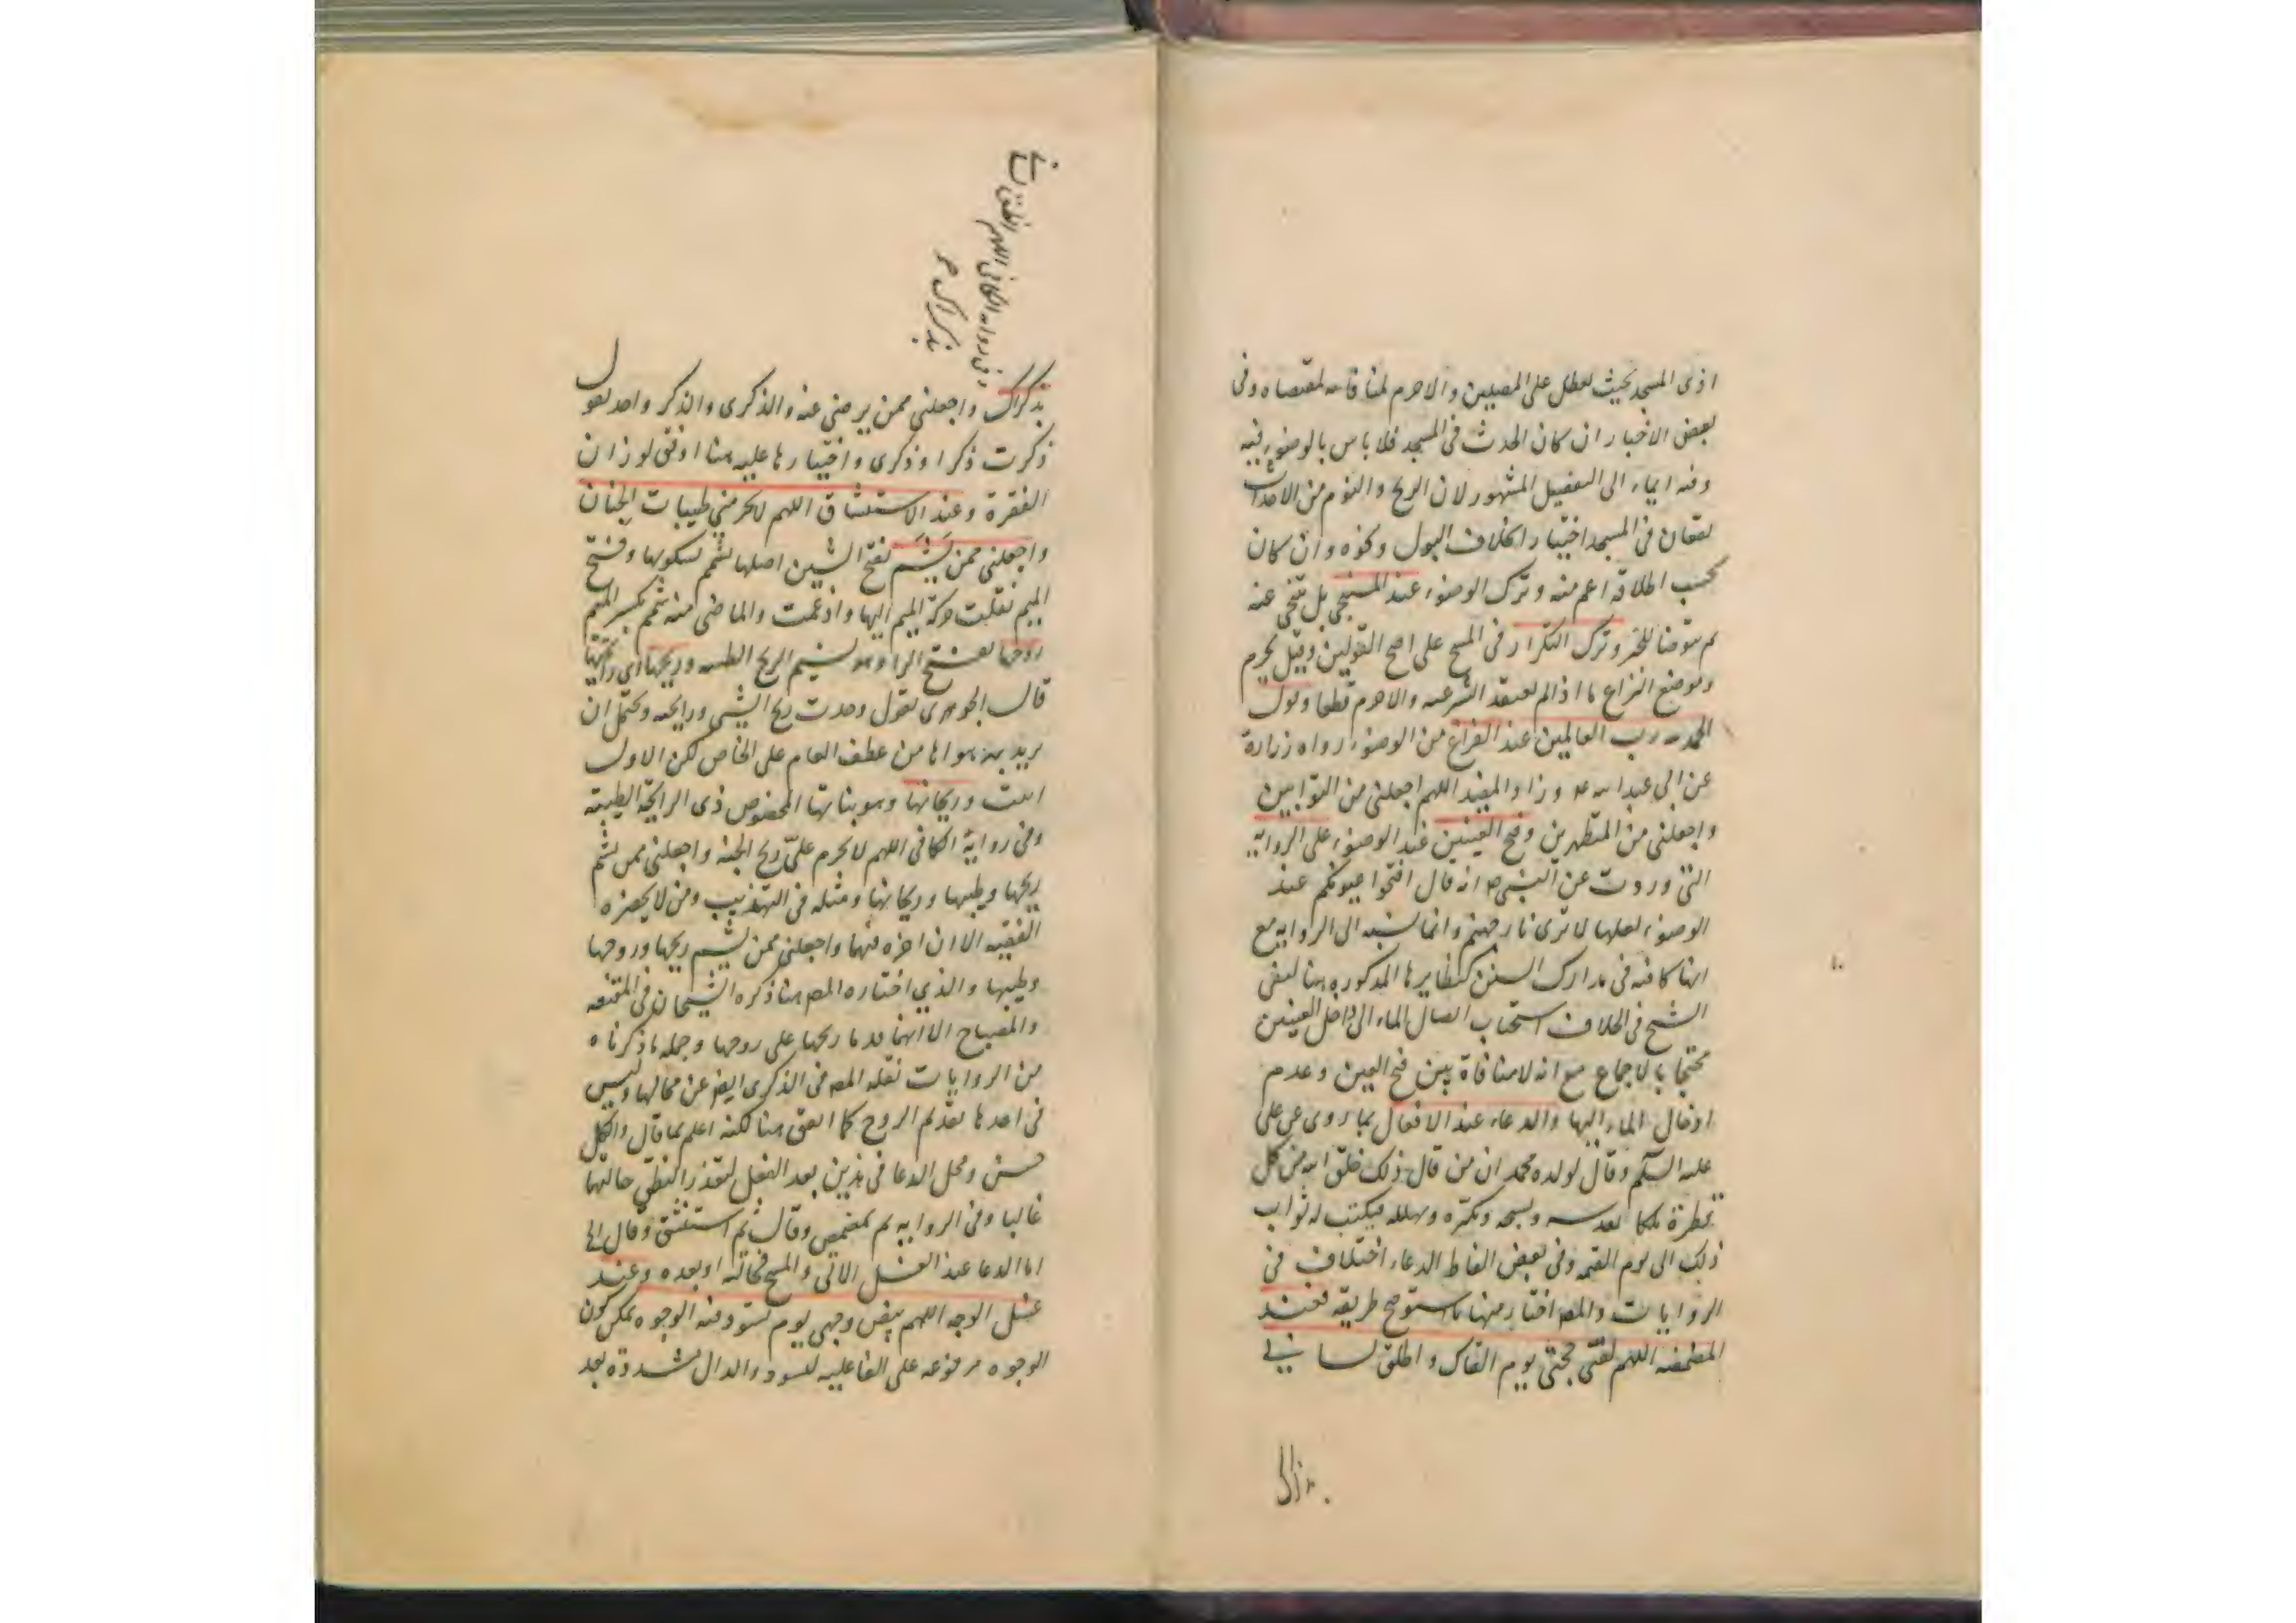 اذى المسجد بحيث لعطل على المصلين والا حرم لمنافاته لمقتضاه وفى
بعض الاخبار ان كان الحدث فى المسجد فلا باس بالوضوء فيه
وفيه ايماء الى التفصيل المشهور لان الريح والنوم من الاحداث
يقعان فى المسجد اختيارا بخلاف البول ونحوه وان كان
بحسب اطلاقه اعم منه وترك الوضوء عند المستنجى بل يتنحى عنه
ثم يتوضا للخبر وترك التكرار فى المسح على اصح القولين وقيل يحرم
وموضع النزاع ما اذا لم يعتقد الشرعيه والا حرم قطعا وقول
الحمد لله رب العالمين عند الفراغ من الوضوء رواه زرارة
عن ابى عبد الله ع وزاد المفيد اللهم اجعلنى من التوابين
واجعلنى من المتطهرين وفتح العينين عند الوضوء على الروايه
التى وردت عن النبى ص انه قال افتحوا عيونكم عند
الوضوء لعلها لا ترى نار جهنم وانما نسبه الى الروايه مع
انها كافيه فى مدارك السنن كنظايرها المذكوره هنا لنفى
الشيخ فى الخلاف استحباب ايصال الماء الى داخل العينين
محتجا بالاجماع مع انه لا منافاة بين فتح العين وعدم
ادخال الماء اليها والدعاء عند الافعال بما روى عن على
عليه السلام وقال لولده محمد ان من قال ذلك خلق الله من كل
قطرة ملكا يقدسه ويسبحه ويكبره ويهلله فيكتب له ثواب
ذلك الى يوم القيمه وفى بعض الفاظ الدعاء اختلاف فى
الروايات والمصـ اختار منها ما ستوضح طريقه فعند
المضمضه اللهم لقنى حجتى يوم القاك واطلق لسانى
بذكراك
بذكراك واجعلنى ممن يرضى عنه والذكرى والذكر واحد تقول
ذكرت ذكرا وذكرى واختيارها عليه هنا اوفق لوزان
الفقرة وعند الاستنشاق اللهم لا تحرمنى طيبات الجنان
واجعلنى ممن يشم بفتح الشين اصلها يشمم بسكونها وفتح
الميم نقلبت حركة الميم اليها وادغمت والماضى منه شمم بكسر الميم
روحها بفتح الرا وهو نسيم الريح الطيبه وريحها اى رائحتها
قال الجوهرى تقول وجدت ريح الشى ورايحته ويحتمل ان
يريد بهذه هواها من عطف العام على الخاص لكن الاول
انسب وريحانها وهو نباتها المخصوص ذى الرايحة الطيبة
وفى رواية الكافى اللهم لا تحرم علىّ ريح الجنه واجعلنى ممن يشم
ريحها وطيبها وريحانها ومثله فى التهذيب ومن لا يحضره
الفقيه الا ان اخره فيهما واجعلنى ممن يشم ريحها وروحها
وطيبها والذى اختاره المصـ هنا ذكره الشيخان فى المقنعه
والمصباح الا انهما قدما ريحها على روحها وجمله ما ذكرناه
من الروايات نقله المصـ فى الذكرى ايضا عن محالها وليس
فى احدها تقديم الروح كما اتفق هنا لكنه اعلم بما قال والكل
حسن ومحل الدعا فى هذين بعد الفعل لتعذر النطق حالتها
غالبا وفى الروايه ثم تمضمض وقال ثم استنشق وقال الخ
اما الدعا عند الغسل الاتى والمسح فحالته او بعده وعند
غسل الوجه اللهم بيض وجهى يوم تسود فيه الوجوه يمكن كون
الوجوه مرفوعه على الفاعليه لتسود والدال مشددة بعد